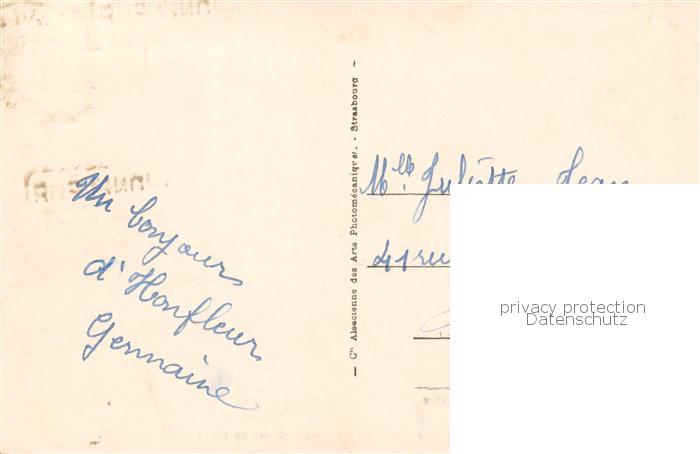 Un bonjour
d'Honfleur
Germaine
— Cie Alsacienne des Arts Photomécaniques. - Strasbourg —
Mlle Juliette Jean
41 rue
privacy protection
Datenschutz